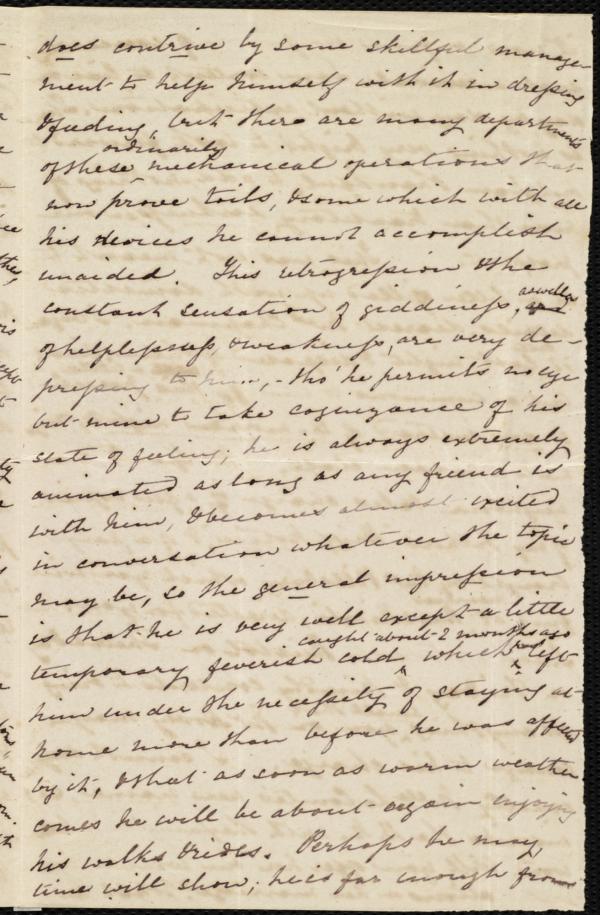 does contrive by some skillful manage-
ment to help himself with it in dressing
& feeding, but there are many departments
ordinarily
of these mechanical operations that
now prove toils, & some which with all
his devices he cannot accomplish
unaided. This retrogression & the
constant sensation of giddiness, as well as
of helplessness, & weakness, are very de-
pressing to him, - tho' he permits no eye
but mine to take cognizance of his
state of feeling; he is always extremely
animated as long as any friend is
with him, & becomes almost excited
in conversation whatever the topic
may be, so the general impression
is that he is very well except a little
caught about 2 months ago
temporary feverish cold, which left
him under the necessity of staying at
home more than before he was affected
by it, & that as soon as warm weather
comes he will be about again enjoying
his walks & rides. Perhaps he may,
time will show; he is far enough from